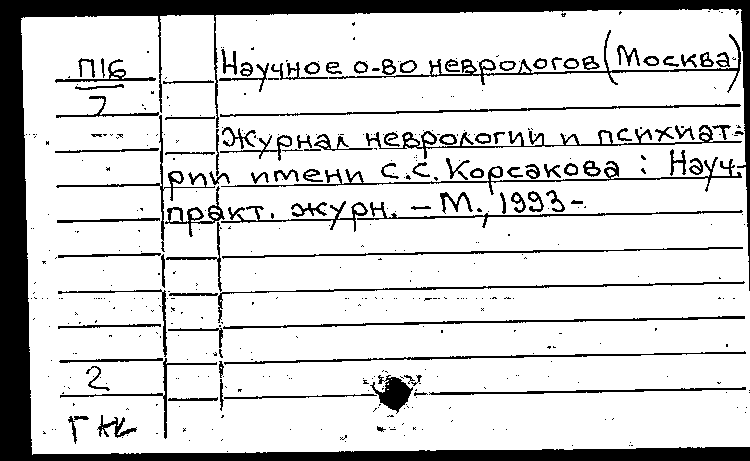 П16 Научное о-во неврологов (Москва)
7
Журнал неврологии и психиат-
рии имени С.С. Корсакова : Науч.-
практ. журн. – М., 1993-
2